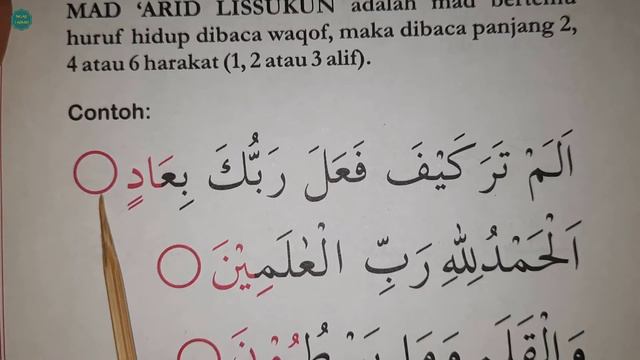 MAD ‘ARID LISSUKUN adalah mad bertemu
huruf hidup dibaca waqof, maka dibaca panjang 2,
4 atau 6 harakat (1, 2 atau 3 alif).
Contoh:
اَلَمْ تَرَ كَيْفَ فَعَلَ رَبُّكَ بِعَادٍ
اَلْحَمْدُلِلّٰهِ رَبِّ الْعٰلَمِيْنَ
وَالْقَلَمِ وَمَا يَسْطُرُوْنَ